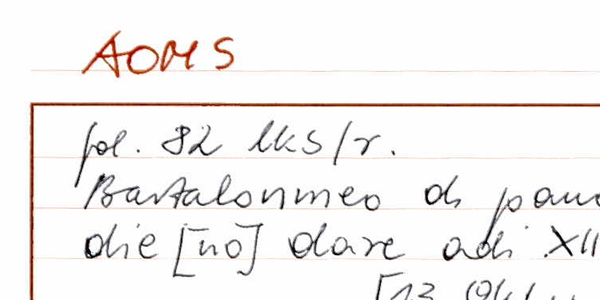 AOMS
fol. 82 lks/r.
Bartalommeo di
die [no] dare adi XII
[13